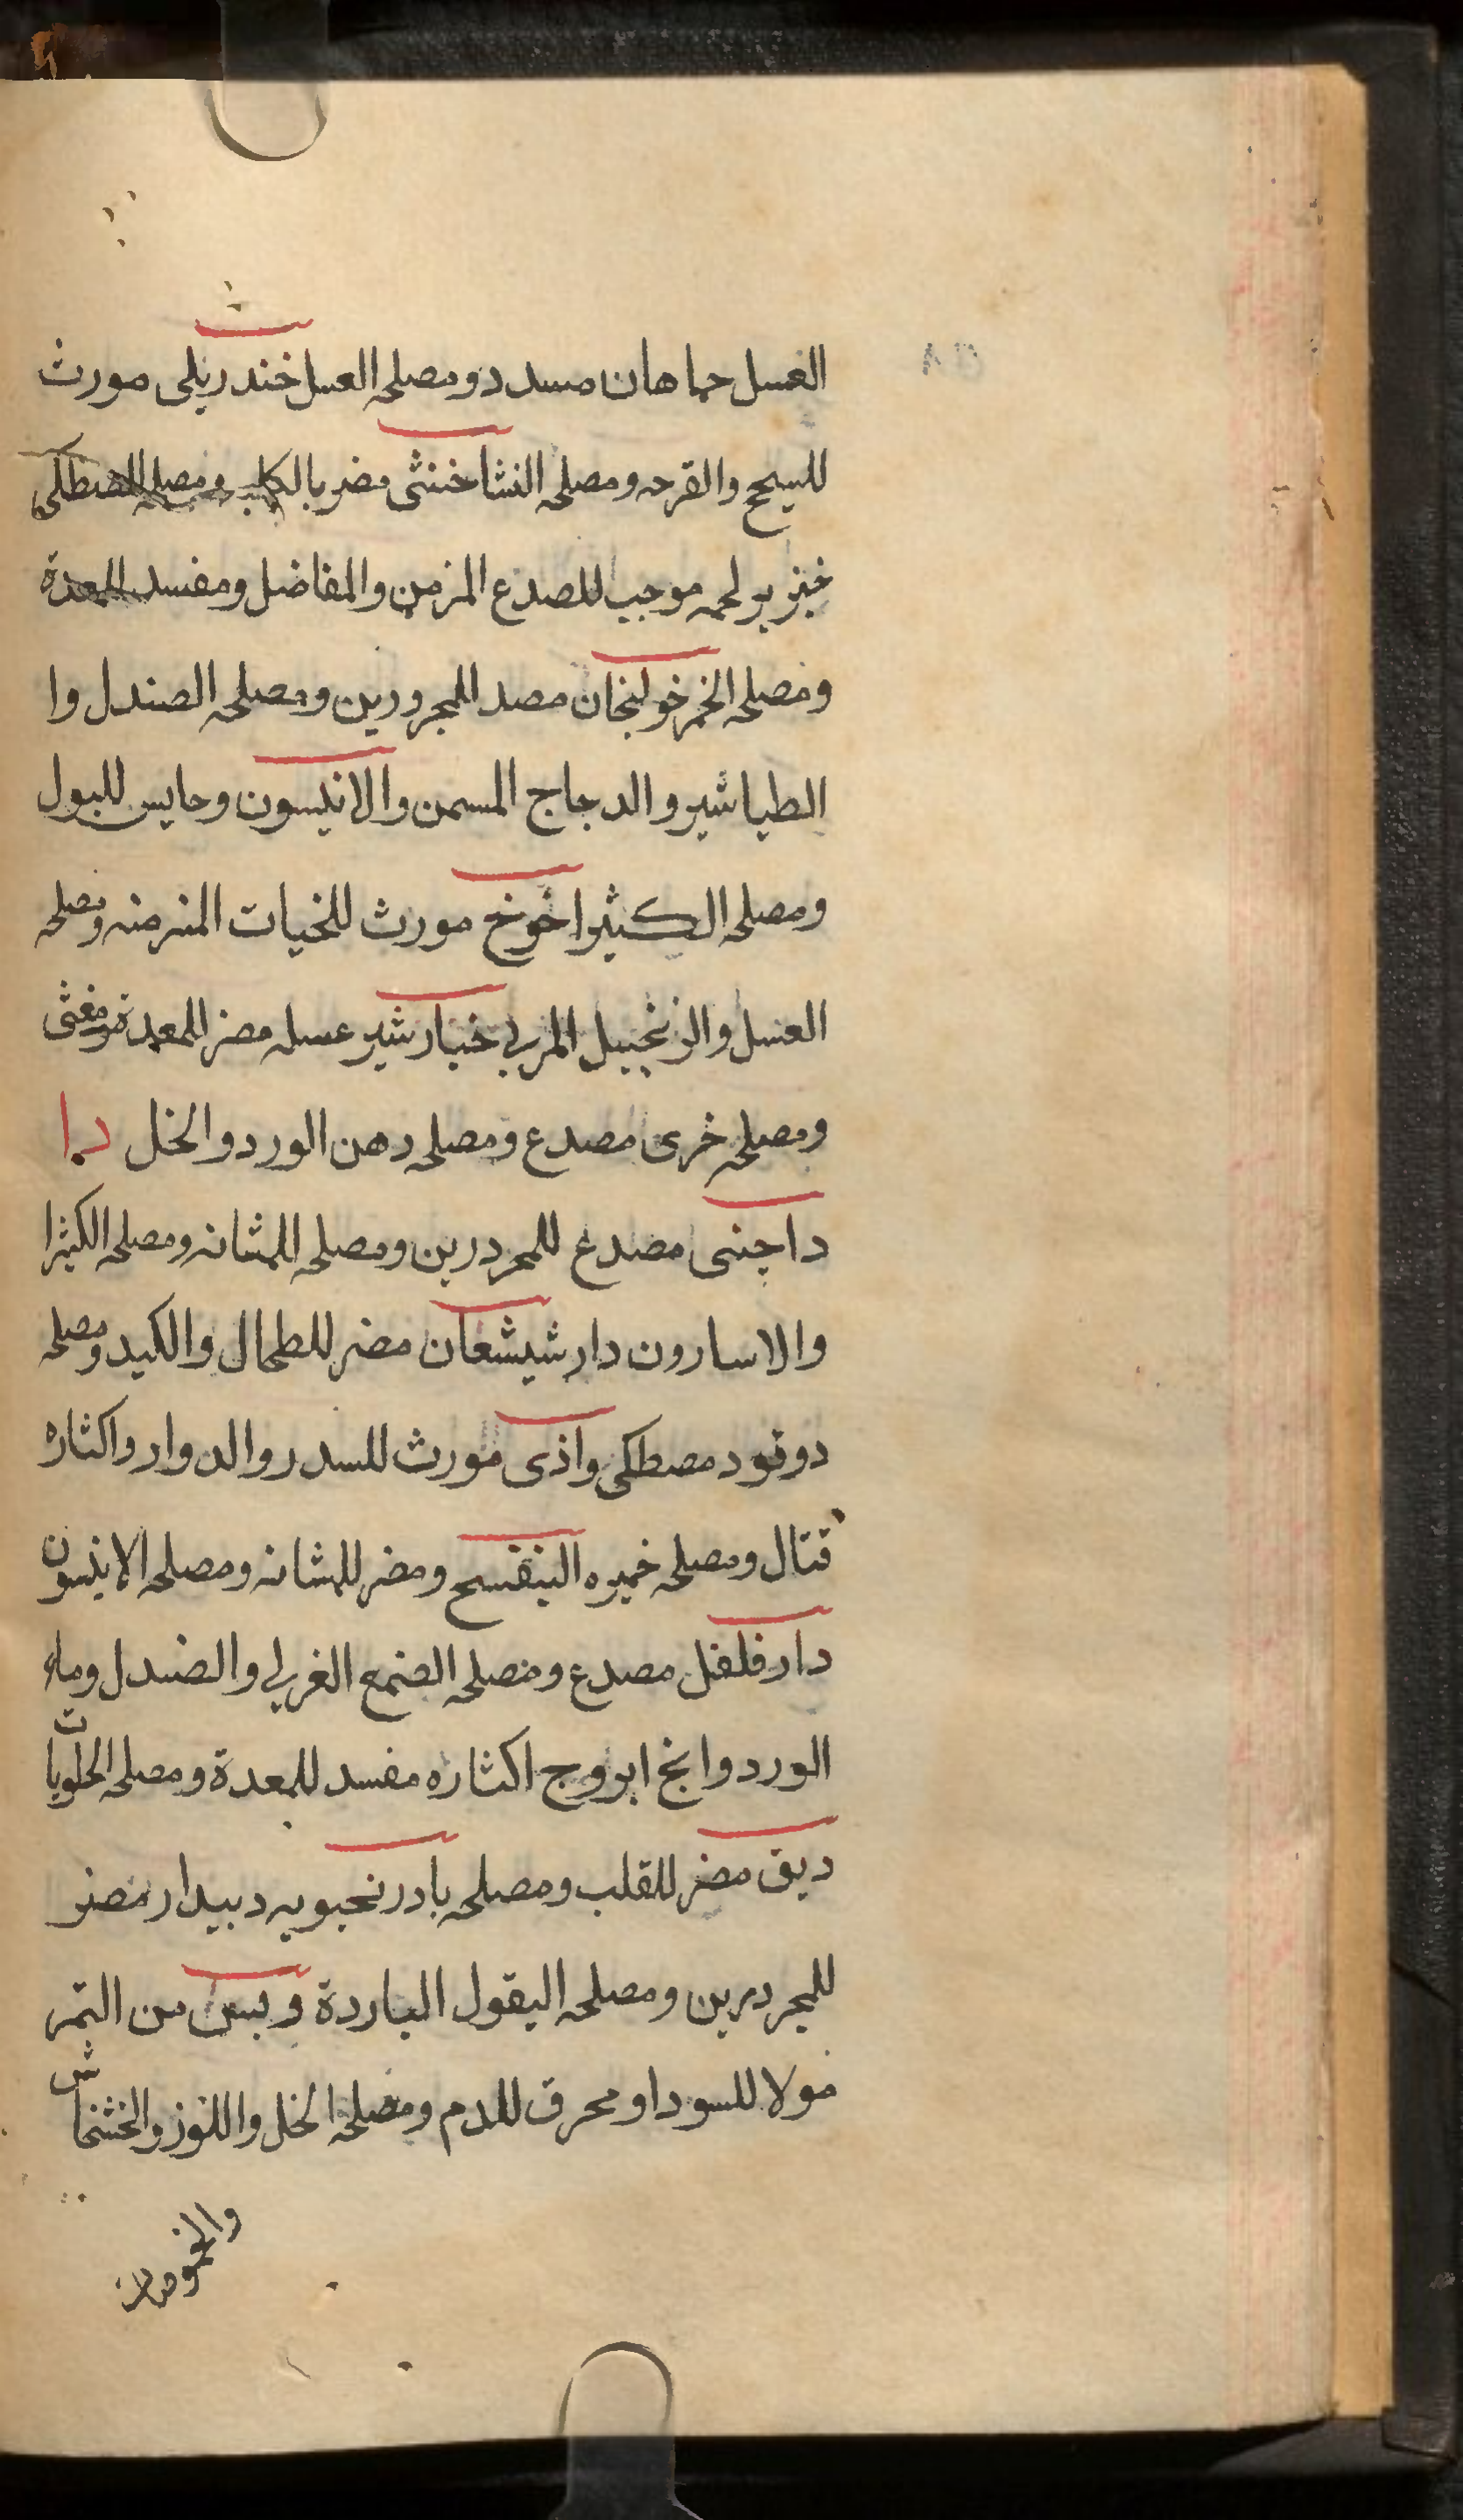 العسل حماهان مسدد ومصلحه العسل خندريلى مورث
للسحج والقرحه ومصلحه النشا خنثى مضر بالكلى ومصلحه المصطكى
خنزير لحمه موجب للصدع المزمن والمفاصل ومفسد للمعدة
ومصلحه الخمر خولنجان مصد للمحرورين ومصلحه الصندل وا
الطباشير والدجاج المسمن والانيسون وحابس للبول
ومصلحه الكثيرا خوخ مورث للحميات المزمنه ومصلحه
العسل والزنجبيل المربى خيارشير عسله مضر للمعدة ومغثى
ومصلحه خرى مصدع ومصلحه دهن الورد والخل دا
داجنى مصدع للمحردرين ومصلحه للمثانه ومصلحه الكثيرا
والاسارون دارشيشعان مضر للطحال والكبد ومصلحه
دوقود مصطكى واذى مورث للسدر والدوار واكثاره
قتال ومصلحه خميره البنفسج ومضر للمثانه ومصلحه الانيسون
دار فلفل مصدع ومصلحه الصمع الغربى والصندل وماء
الورد وابخ ابروج اكثاره مفسد للمعدة ومصلحه الحلويات
ديق مضر للقلب ومصلحه بادرنجبويه دبيدار مضر
للمحردرين ومصلحه البقول الباردة وبس من التمر
مولا للسودا ومحرق للدم ومصلحه الخل واللوز والخشخاش